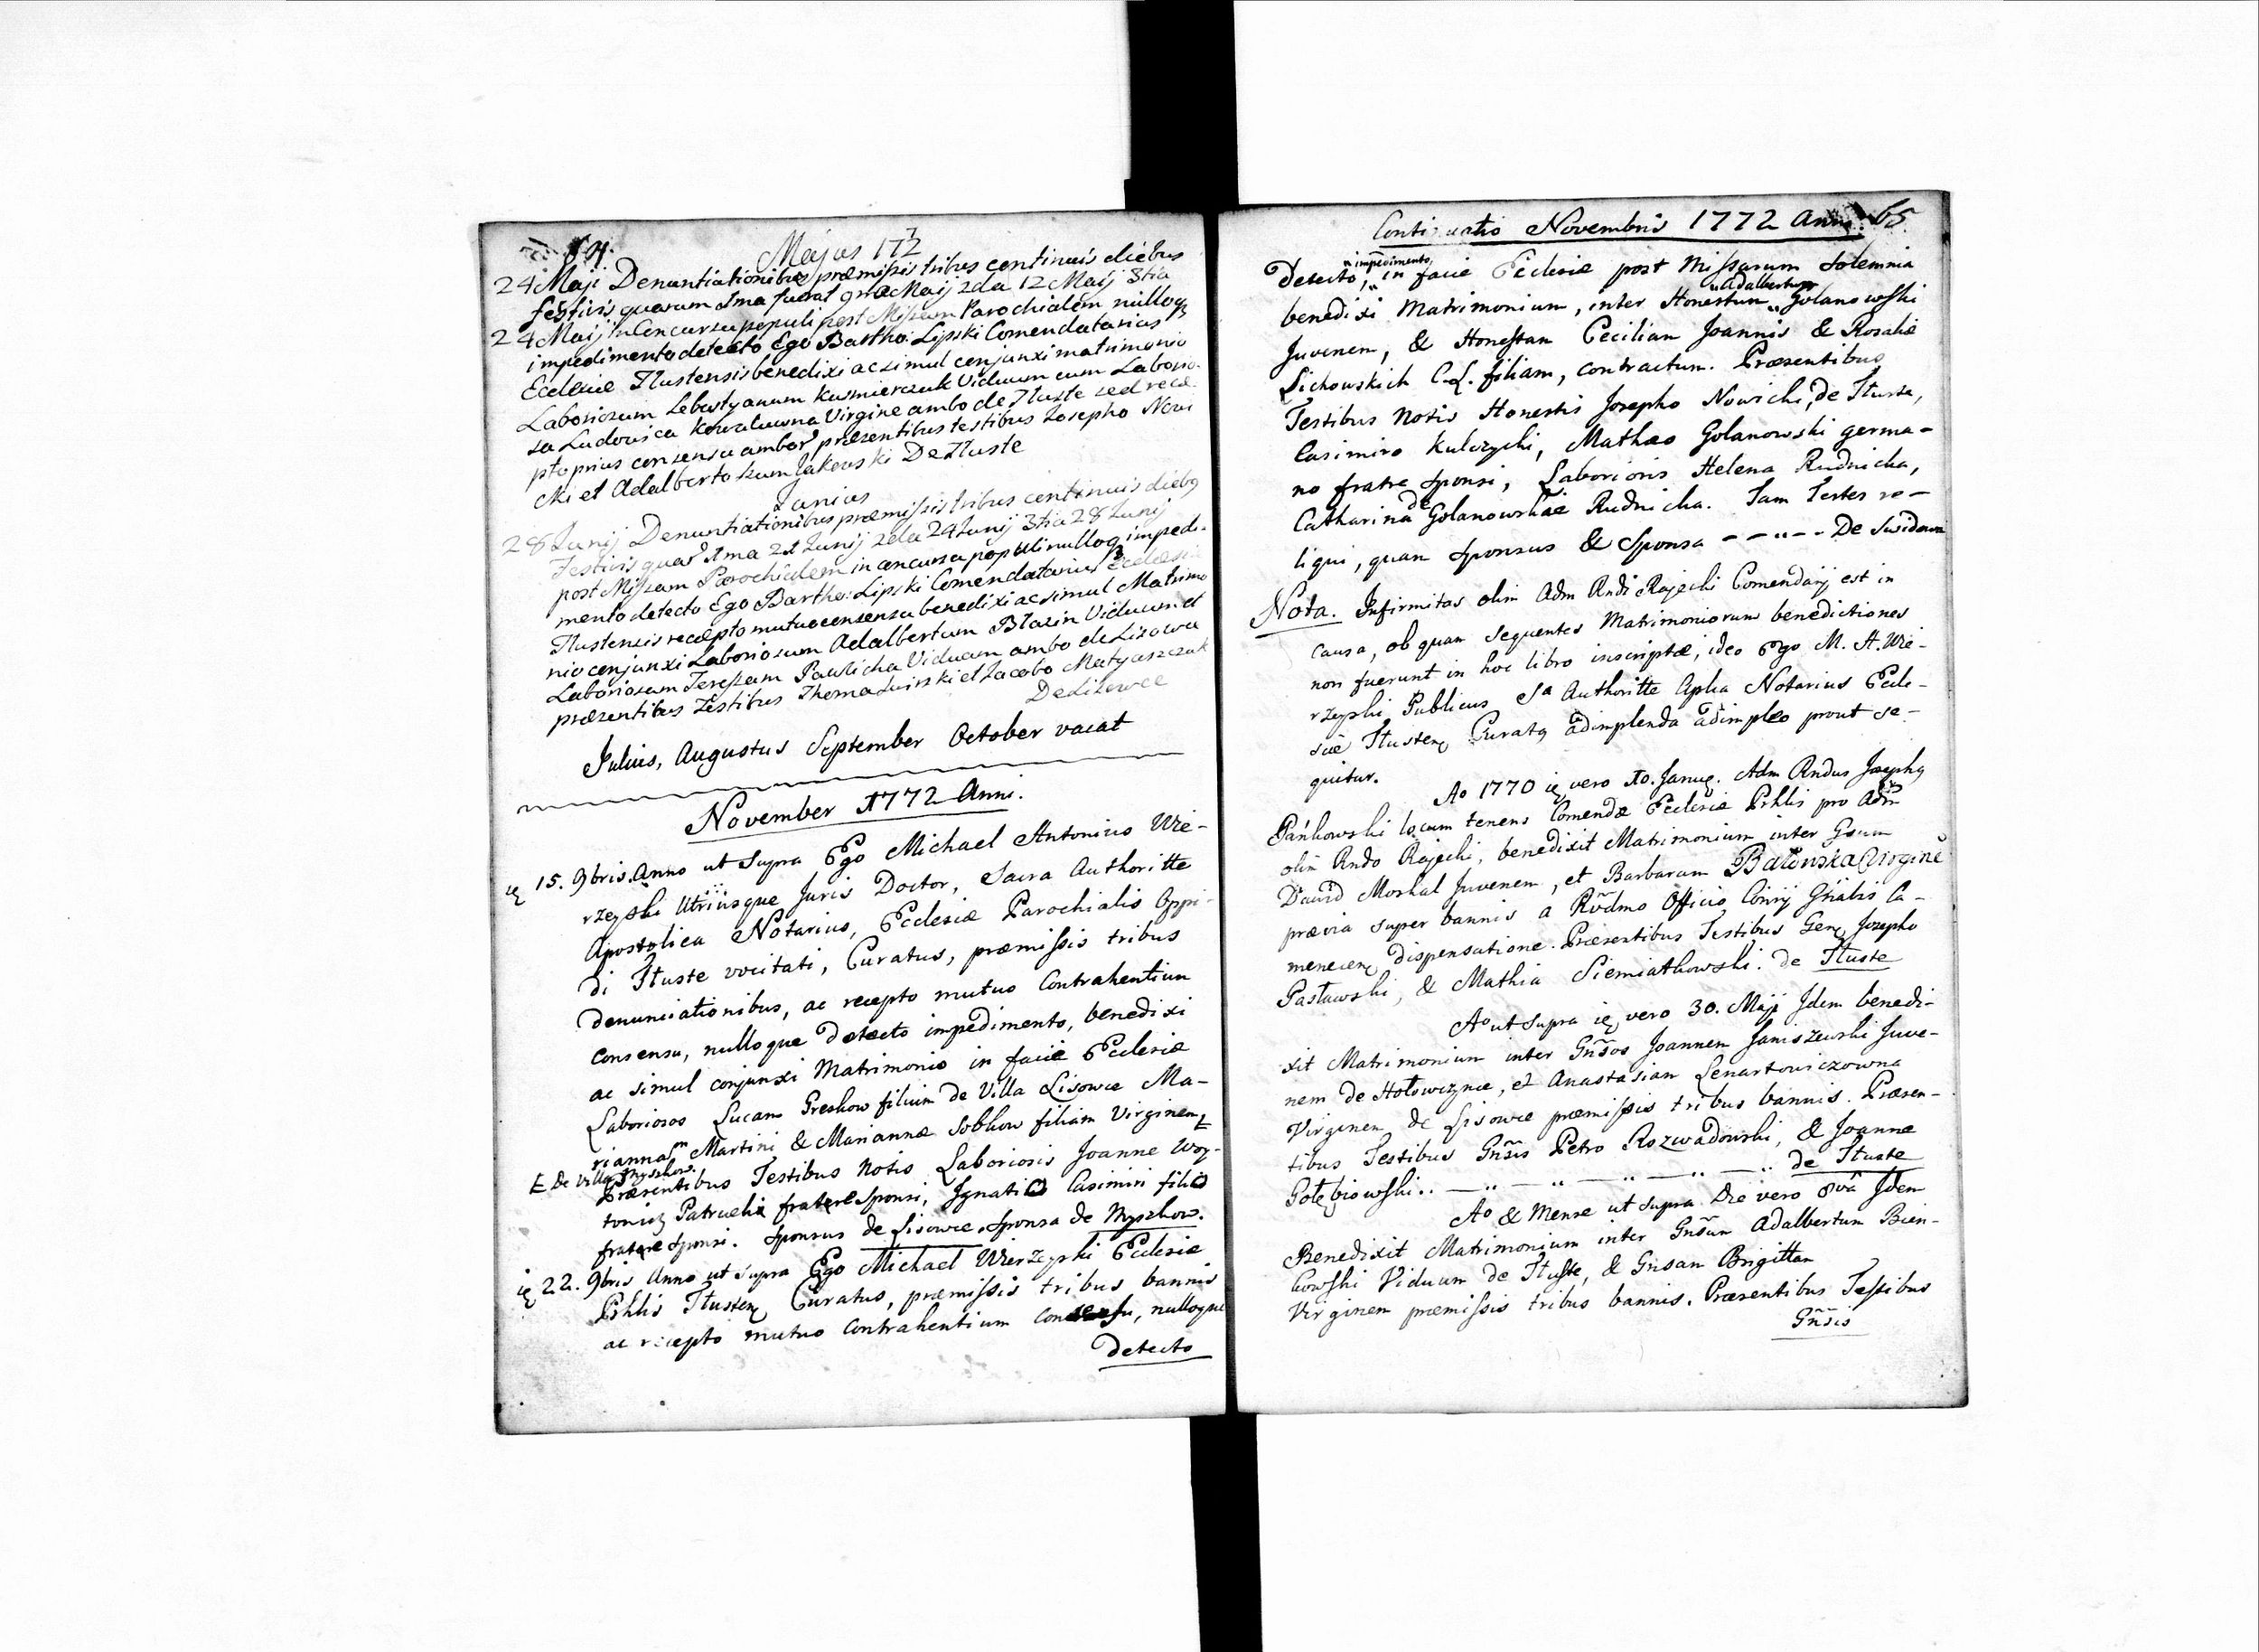 64.
Majus 1772
24 Maji Denuntiationibus præmissis tribus continuis diebus
festivis quarum 1ma fuerat 9na Maij 2da 12 Maij 3tia
24 Maij in Concursu populi post Missam Parochialem nulloq
impedimento detecto Ego Bartho: Lipski Comendatarius
Eclesiæ Tlustensis benedixi ac simul conjunxi matrimonio
Laboriosum Sebastyanum Kusmierczuk Viduum cum Laborio-
sa Ludovica Kowaluwna Virgine ambo de Tluste sed rece-
pto prius consensu ambor præsentibus testibus Josepho Novi
cki et Adalberto De Tluste
Junius
28 Junij Denuntiationibus præmissis tribus continuis diebq
Festivis quar 1ma 21 Junij 2da 24 Junij 3tia 28 Junij
post Missam Parochialem in concursu populi nulloq impedi-
mento detecto Ego Bartho: Lipski Comendatarius Ecclesiæ
Tlustensis recepto mutuo consensu benedixi ac simul Matrimo
nio conjunxi Laboriosum Adalbertum Blazin Viduum et
Laboriosam Teressam Pawlicha Viduam ambo de Lisowce
præsentibus Testibus Thoma et Jacobo Matyaszczuk
De Lisowce
Julius, Augustus September October vacat
November 1772 Anni.
15. 9bris. Anno ut supra Ego Michael Antonius Wie-
rzeyski Utriusque Juris Doctor, Sacra Authoritte
Apostolica Notarius, Ecclesiæ Parochialis Oppi-
di Tłuste vocitati, Curatus, præmissis tribus
denunciationibus, ac recepto mutuo Contrahentium
consensu, nulloque detecto impedimento, benedixi
ac simul conjunxi Matrimonio in facie Ecclesiæ
Laboriosos Lucam Greskow filium de Villa Lisowce Ma-
riannam Martini & Mariannæ Sobkow filiam Virginem
E De Villa Myszkow.
Præsentibus Testibus Notis Laboriosis Joanne Woy-
Patrueli fratre Sponsi, Ignatio Casimiri filio
fratre Sponsi. Sponsus de Lisowce Sponsa de Myszkow.
22. 9bris Anno ut supra Ego Michael Wierzeyski Ecclesiæ
Prhlis Tłusten Curatus, præmissis tribus bannis
ac recepto mutuo Contrahentium consensu, nulloque
detecto
Continuatio Novembris 1772 Anni. 65.
"impedimento,
Detecto, in facie Ecclesiæ post Missarum Solemnia
"Adalbertum
benedixi Matrimonium, inter Honestum Golanowski
Juvenem, & Honestam Ceciliam Joannis & Rosaliæ
Lichowskich C.L. filiam, contractum. Præsentibus
Testibus Notis Honestis Josepho Nowicki, de Tłuste,
Casimiro Kulczycki, Mathæo Golanowski germa-
no fratre Sponsi, Laboriosis Helena Rudnicka,
Catharina de Golanowskie Rudnicka. Tam Testes re-
liqui, quam Sponsus & Sponsa De Swidowa
Nota. Infirmitas olim Adm Rndi Rajecki Comendarij est in
causa, ob quam sequentes Matrimoniorum benedictiones
non fuerunt in hoc libro inscriptæ, ideo Ego M. A. Wie-
rzeyski Publicus Sa Authoritte Aplica Notarius Eccle-
siæ Tłusten Curatq adimplenda adimpleo prout se-
quitur.
Ao 1770 vero 10. Adm Rndus Josephq
Pańkowski locum tenens Comendæ Ecclesiæ Prhlis pro Adm
olim Rndo Rajecki, benedixit Matrimonium inter Gsum
David Moskal Juvenem, et Barbaram Virginē
prævia super bannis a Rvdmo Officio Gnalis Ca-
menecen dispensatione. Præsentibus Testibus Gen Josepho
Pasławski, & Mathia Siemiatkowski. de Tłuste
Ao ut supra vero 30. Maji Idem benedi-
xit Matrimonium inter Gnsos Joannem Janiszewski Juve-
nem de Hołowczynce, et Anastasiam Lenartowiczowna
Virginem de Lisowce præmissis tribus bannis. Præsen-
tibus Testibus Gnsis Petro Rozwadowski, & Joanne
Gołębiowski. de Tłuste
Ao & Mense ut supra Die vero Idem
Benedixit Matrimonium inter Gnsum Adalbertum Bien-
kowski Viduum de Tłuste, & Gnsam Brigittam
Virginem præmissis tribus bannis. Præsentibus Testibus
Gnsis